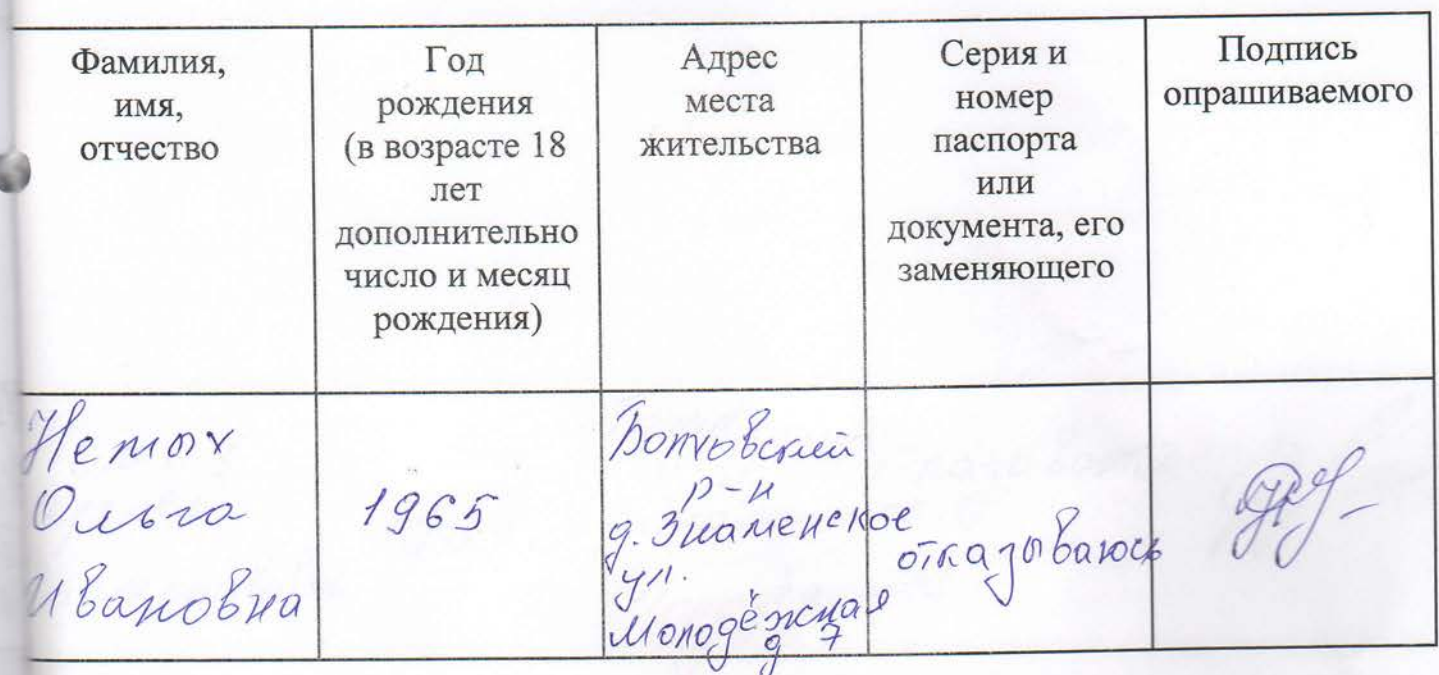 Фамилия,
имя,
отчество
Год
рождения
(в возрасте 18
лет
дополнительно
число и месяц
рождения)
Адрес
места
жительства
Серия и
номер
паспорта
или
документа, его
заменяющего
Подпись
опрашиваемого
Немых
Ольга
Ивановна
1965
Болховский
р-н
д. Знаменское
ул.
Молодёжная
д 7
отказываюсь